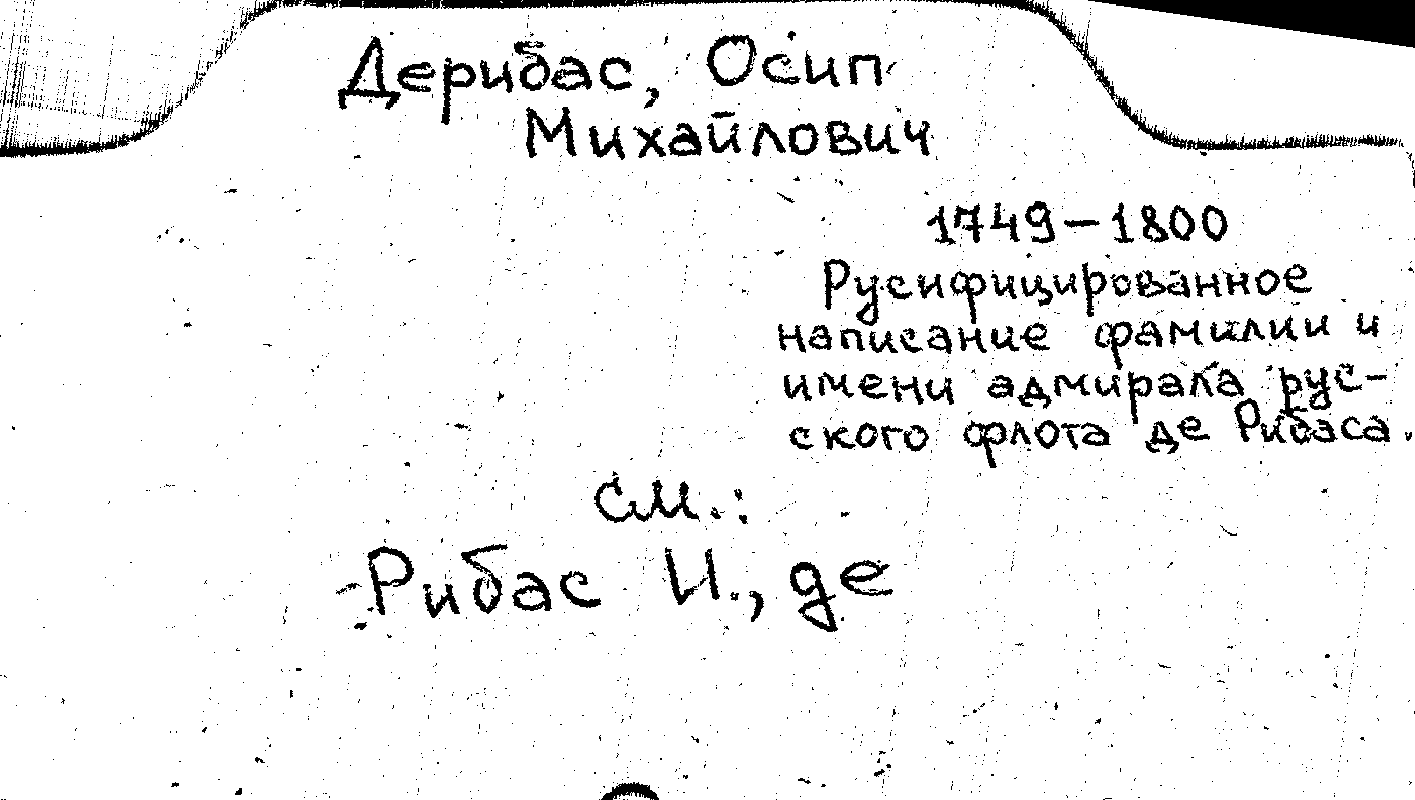 Дерибас, Осип
Михайлович
1749-1800
Русифицированное
написание фамилии и
имени адмирала рус-
ского флота де Рибаса.
см.:
Рибас И., де